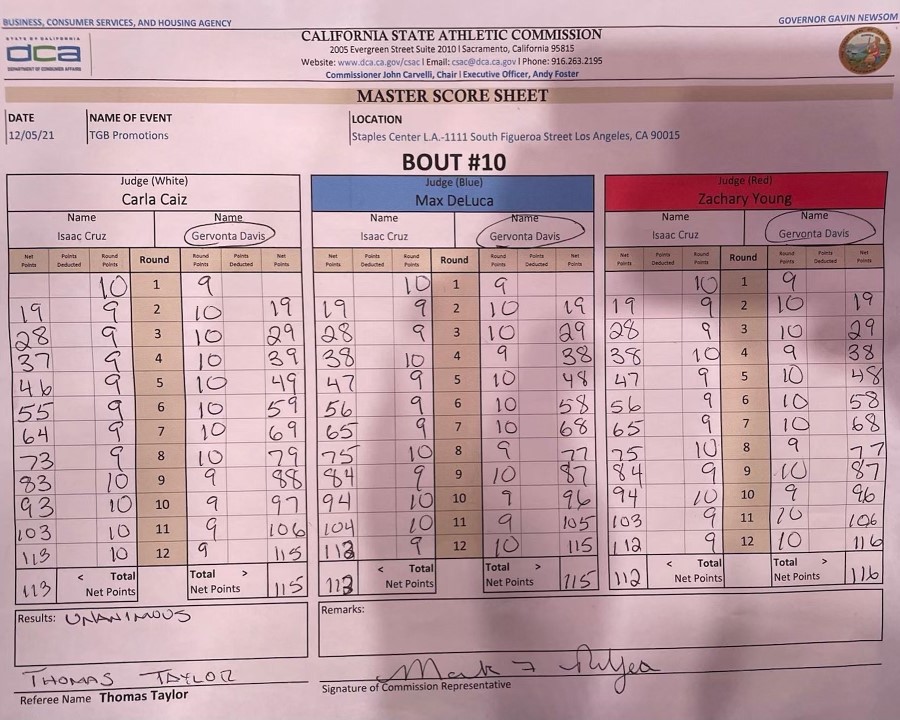 BUSINESS, CONSUMER SERVICES, AND HOUSING AGENCY GOVERNOR GAVIN NEWSOM
STATE OF CALIFORNIA
dca
DEPARTMENT OF CONSUMER AFFAIRS
CALIFORNIA STATE ATHLETIC COMMISSION
2005 Evergreen Street Suite 2010 l Sacramento, California 95815
Website: www.dca.ca.gov/csac l Email: csac@dca.ca.gov l Phone: 916.263.2195
Commissioner John Carvelli, Chair l Executive Officer, Andy Foster
MASTER SCORE SHEET
DATE NAME OF EVENT LOCATION
12/05/21 TGB Promotions Staples Center L.A.-1111 South Figueroa Street Los Angeles, CA 90015
BOUT #10
Judge (White) Judge (Blue) Judge (Red)
Carla Caiz Max DeLuca Zachary Young
Name Name Name Name Name Name
Isaac Cruz Gervonta Davis Isaac Cruz Gervonta Davis Isaac Cruz Gervonta Davis
Net Points Points Deducted Round Points Round Round Points Points Deducted Net Points Net Points Points Deducted Round Points Round Round Points Points Deducted Net Points Net Points Points Deducted Round Points Round Round Points Points Deducted Net Points
10 1 9 10 1 9 10 1 9
19 9 2 10 19 19 9 2 10 19 19 9 2 10 19
28 9 3 10 29 28 9 3 10 29 28 9 3 10 29
37 9 4 10 39 38 10 4 9 38 38 10 4 9 38
46 9 5 10 49 47 9 5 10 48 47 9 5 10 48
55 9 6 10 59 56 9 6 10 58 56 9 6 10 58
64 9 7 10 69 65 9 7 10 68 65 9 7 10 68
73 9 8 10 79 75 10 8 9 77 75 10 8 9 77
83 10 9 9 88 84 9 9 10 87 84 9 9 10 87
93 10 10 9 97 94 10 10 9 96 94 10 10 9 96
103 10 11 9 106 104 10 11 9 105 103 9 11 10 106
113 10 12 9 115 113 9 12 10 115 112 9 12 10 116
113 < Total Net Points Total > Net Points 115 113 < Total Net Points Total > Net Points 115 112 < Total Net Points Total > Net Points 116
Results: UNANIMOUS Remarks:
THOMAS TAYLOR
Referee Name Thomas Taylor Signature of Commission Representative